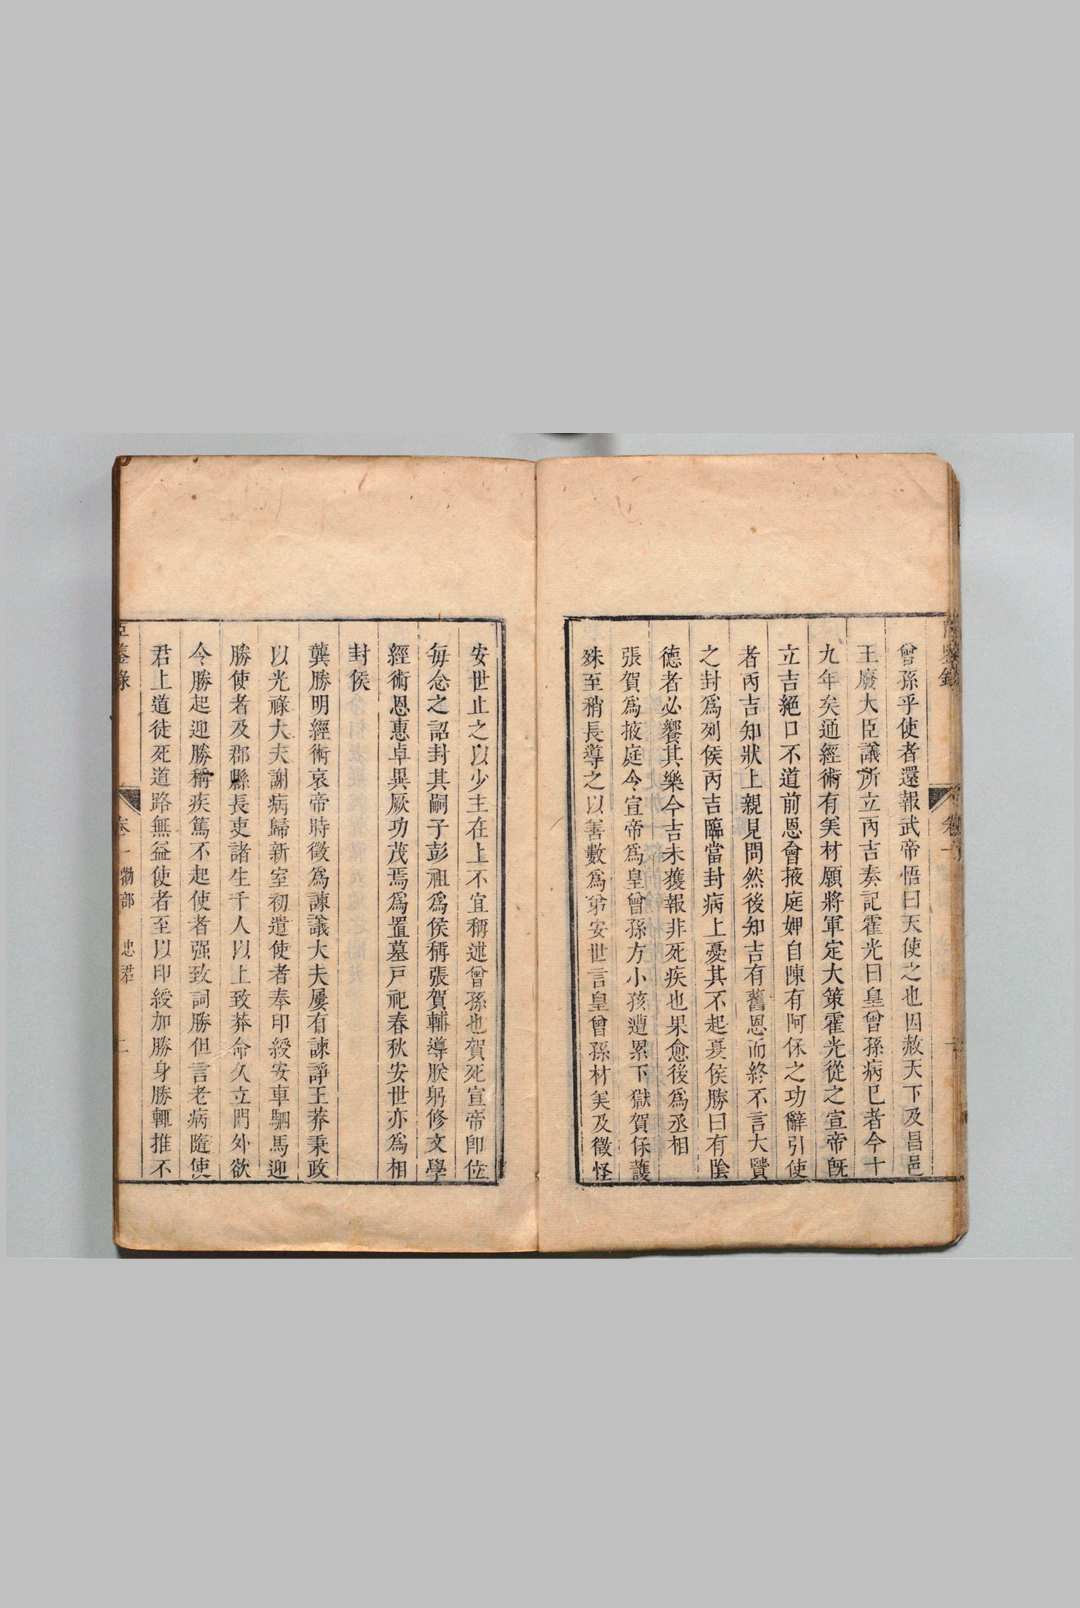 曾孫乎使者還報武帝悟曰天使之也因赦天下及昌邑
王廢大臣議所立丙吉奏記霍光曰皇曾孫病已者今十
九年矣通經術有美材願將軍定大策霍光從之宣帝旣
立吉絕口不道前恩會掖庭婢自陳有阿保之功辭引使
者丙吉知狀上親見問然後知吉有舊恩而終不言大賢
之封爲列侯丙吉臨當封病上憂其不起夏侯勝曰有陰
德者必饗其樂今吉未獲報非死疾也果愈後爲丞相
張賀爲掖庭令宣帝爲皇曾孫方小孩遭累下獄賀保護
殊至稍長導之以善數爲弟安世言皇曾孫材美及徵怪
安世止之以少主在上不宜稱述曾孫也賀死宣帝卽位
每念之詔封其嗣子彭祖爲侯稱張賀輔導朕躬修文學
經術恩惠卓異厥功茂焉爲置墓戸祀春秋安世亦爲相
封侯
龔勝明經術哀帝時徵爲諫議大夫屢有諫諍王莽秉政
以光祿大夫謝病歸新室初遣使者奉印綬安車駟馬迎
勝使者及郡縣長吏諸生千人以上致莽命久立門外欲
令勝起迎勝稱疾篤不起使者强致詞勝但言老病隨使
君上道徒死道路無益使者至以印綬加勝身勝輒推不
卷一 物部 忠君 二